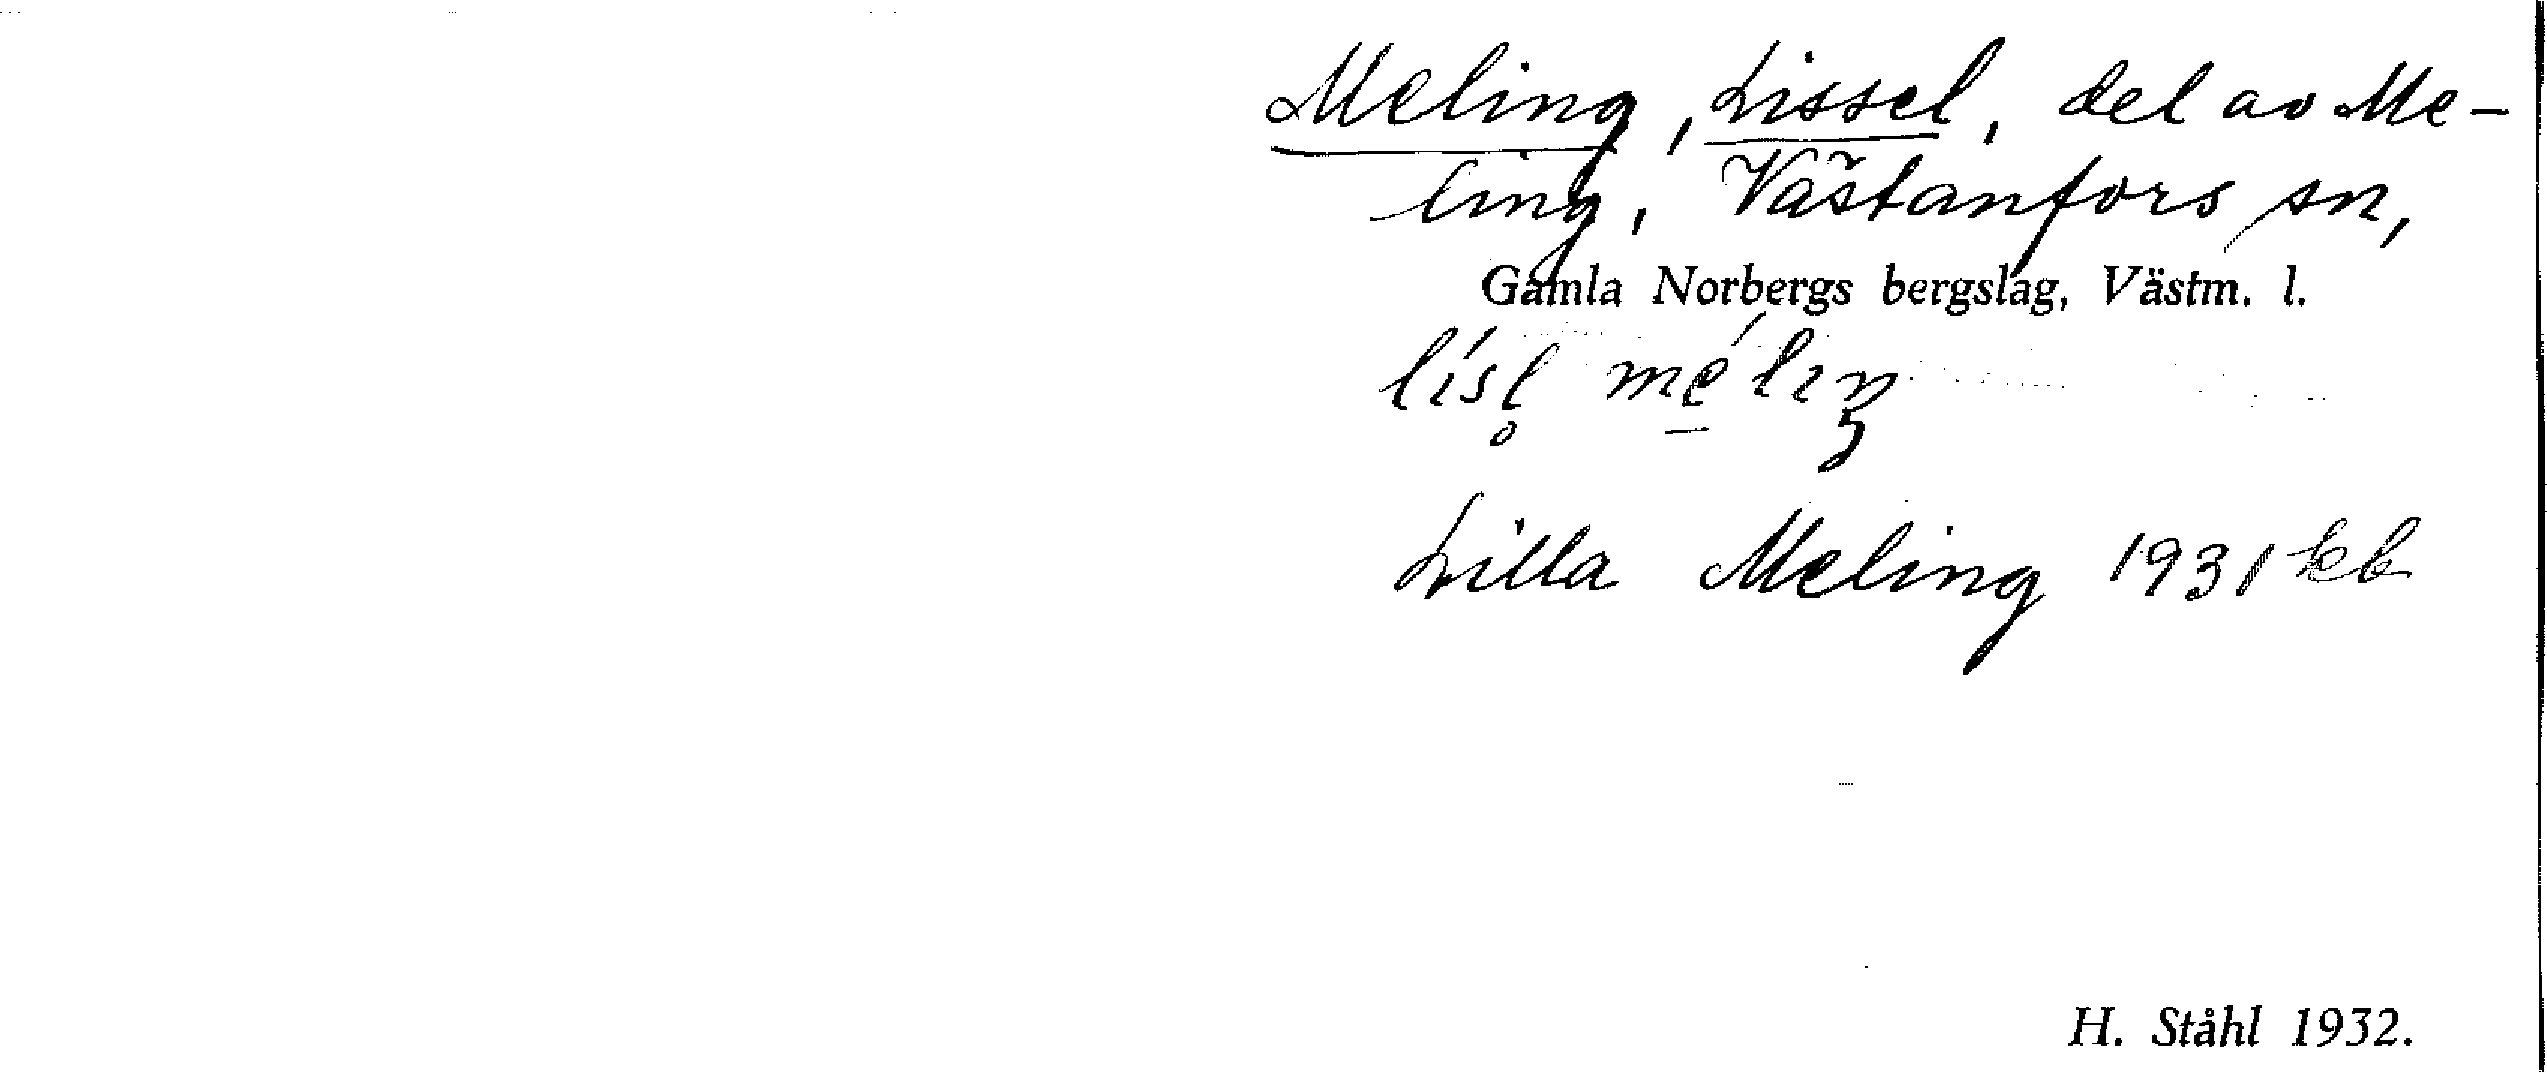 Meling, Lissel, del av Me-
ling, Västanfors sn,
Gamla Norbergs bergslag, Västm. l.
lísl̥ mé̱lıŋ
Lilla Meling 1931 kb
H. Ståhl 1932.